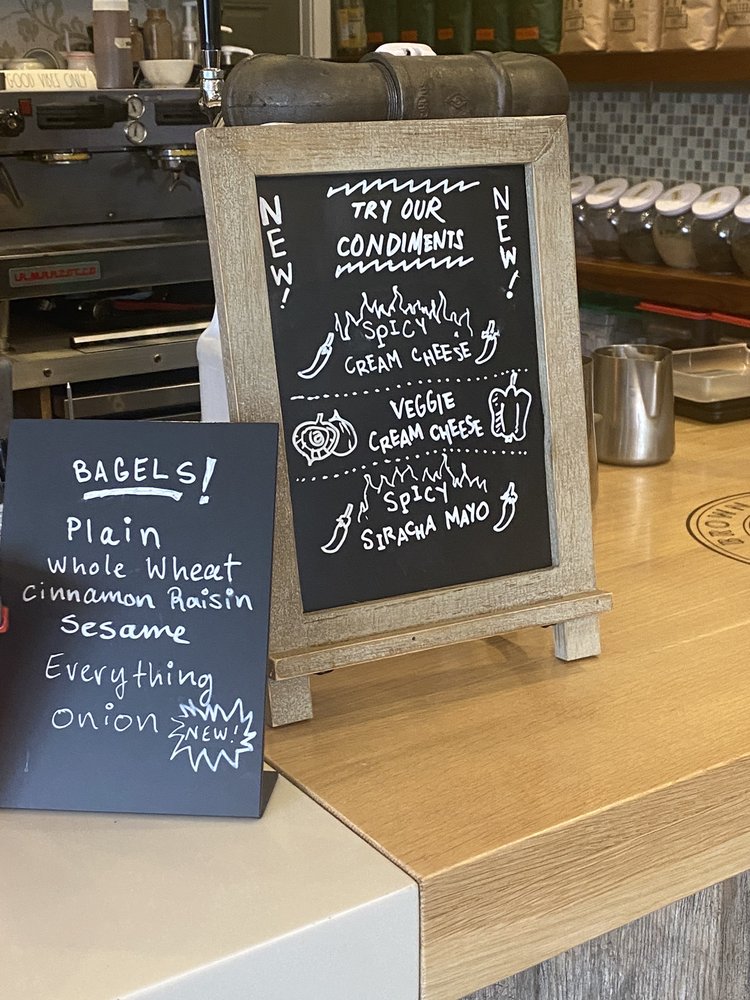 GOOD VIBES ONLY
LA MARZOCCO
NEW!
TRY OUR
CONDIMENTS
NEW!
SPICY
CREAM CHEESE
VEGGIE
CREAM CHEESE
SPICY
SIRACHA MAYO
BAGELS!
Plain
Whole Wheat
Cinnamon Raisin
Sesame
Everything
Onion
NEW!